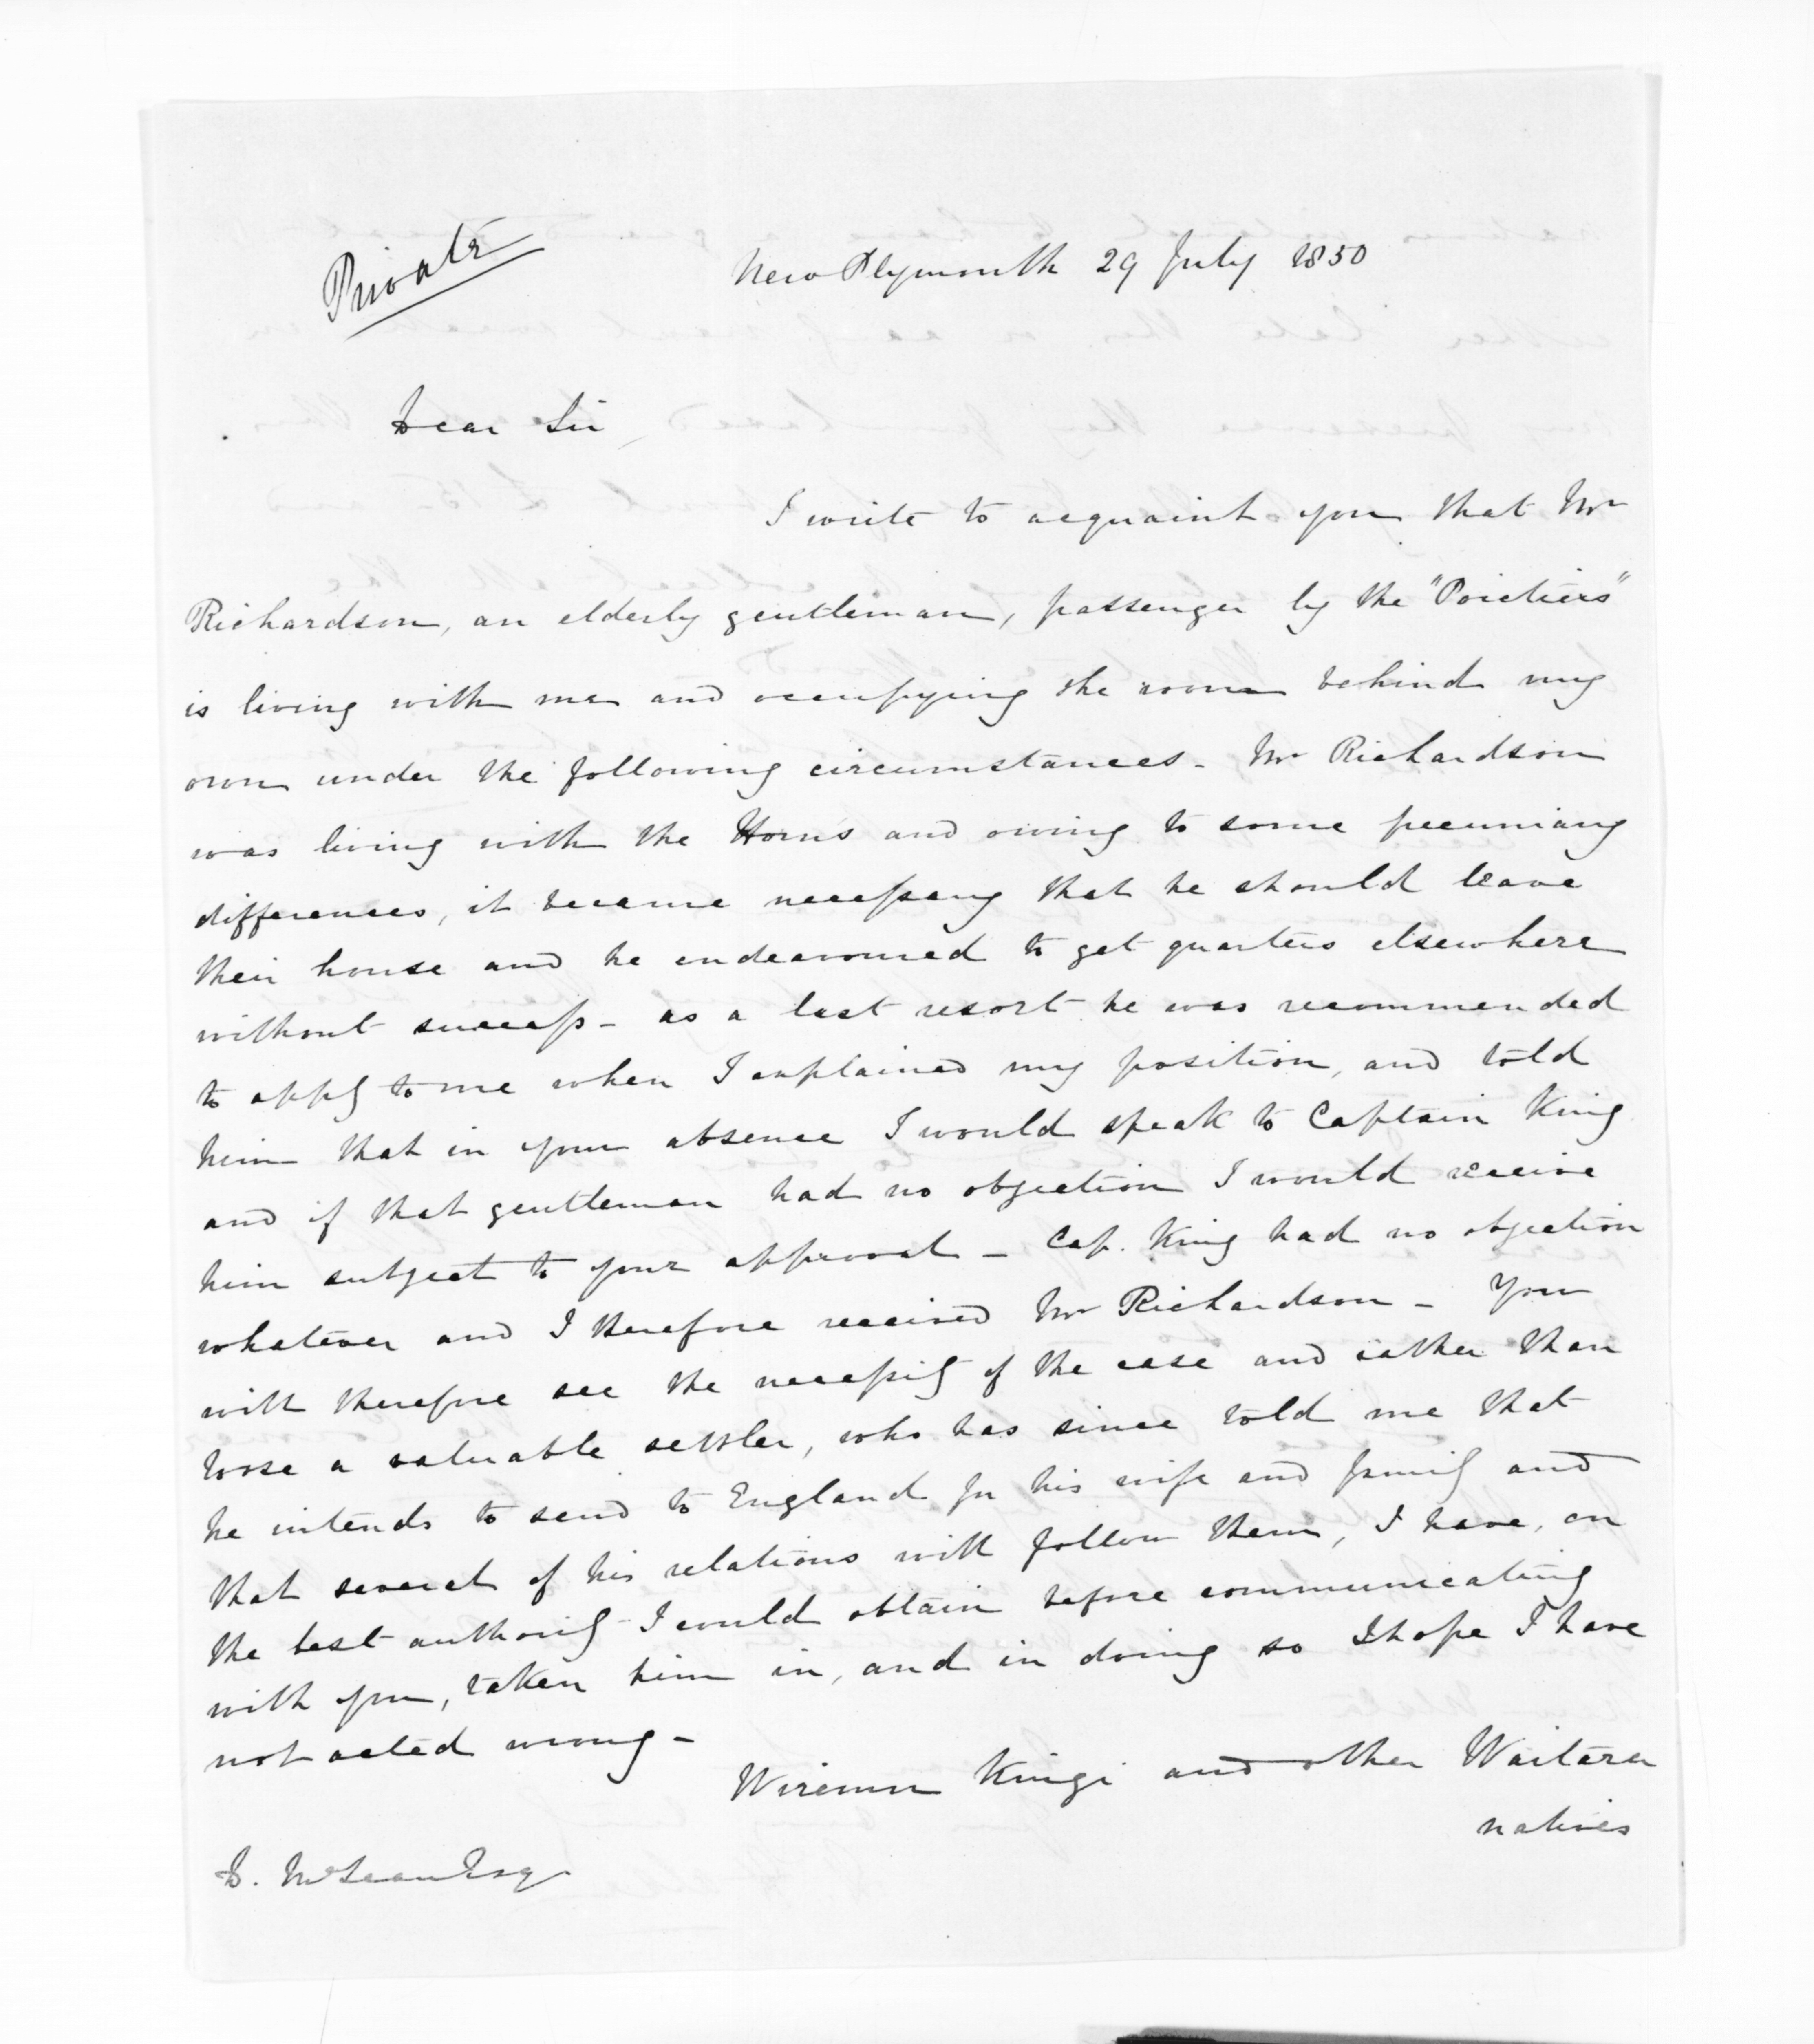 Private
New Plymouth 29 July 1850
Dear Sir,
I write to acquaint you that Mr
Richardson, an elderly gentleman, passenger by the "Poictiers"
is living with me and occupying the room behind my
own under the following circumstances - Mr Richardson
was living with the Horns and owing to some pecuniary
differences, it became necessary that he should leave
their house and he endeavoured to get quarters elsewhere
without success - as a last resort he was recommended
to apply to me when I explained my position, and told
him that in your absence I would speak to Captain King
and if that gentleman had no objection I would receive
him subject to your approval - Cap. King had no objection
whatever and I therefore received Mr Richardson - You
will therefore see the necessity of the case and rather than
loose a valuable settler, who has since told me that
he intends to send to England for his wife and family and
that several of his relations will follow them, I have, on
the best authority I could obtain before communicating
with you, taken him in, and in doing so I hope I have
not acted wrong -
Wiremu Kingi and other Waitara
natives
D. McLean Esq